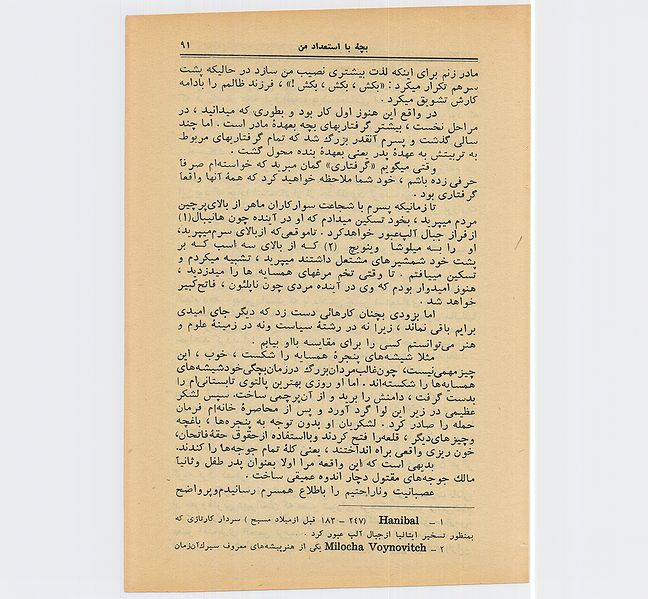 بچهٔ با استعداد من ۹۱
مادر زنم برای اینکه لذت بیشتری نصیب من سازد در حالیکه پشت
سرهم تکرار میکرد : «بکش ، بکش ، بکش !» ، فرزند ظالمم را بادامه
کارش تشویق میکرد .
در واقع این هنوز اول کار بود و بطوری که میدانید ، در
مراحل نخست ، بیشتر گرفتاریهای بچه بعهدهٔ مادر است . اما چند
سالی گذشت و پسرم آنقدر بزرگ شد که تمام گرفتاریهای مربوط
به تربیتش به عهدهٔ پدر یعنی بعهدهٔ بنده محول گشت .
وقتی میگویم «گرفتاری» گمان مبرید که خواسته‌ام صرفاً
حرفی زده باشم ، خود شما ملاحظه خواهید کرد که همهٔ آنها واقعاً
گرفتاری بود .
تا زمانیکه پسرم با شجاعت سوارکاران ماهر از بالای پرچین
مردم میپرید ، بخود تسکین میدادم که او در آینده چون هانیبال(۱)
از فراز جبال آلپ عبور خواهد کرد . تا موقعی که از بالای سرم میپرید،
او را به میلوشا وینویچ (۲) که از بالای سه اسب که بر
پشت خود شمشیرهای مشتعل داشتند میپرید ، تشبیه میکردم و
تسکین مییافتم . تا وقتی تخم مرغهای همسایه ها را میدزدید ،
هنوز امیدوار بودم که وی در آینده مردی چون ناپلئون ، فاتح کبیر
خواهد شد .
اما بزودی بچنان کارهائی دست زد که دیگر جای امیدی
برایم باقی نماند ، زیرا نه در رشتهٔ سیاست ونه در زمینهٔ علوم و
هنر می‌توانستم کسی را برای مقایسه بااو بیابم .
مثلا شیشه‌های پنجرهٔ همسایه را شکست ، خوب ، این
چیز مهمی نیست، چون غالب مردان بزرگ در زمان بچگی خود شیشه‌های
همسایه‌ها را شکسته‌اند . اما او روزی بهترین پالتوی تابستانی‌ام را
بدست گرفت ، دامنش را برید و از آن پرچمی ساخت. سپس لشکر
عظیمی در زیر این لوا گرد آورد و پس از محاصرهٔ خانه‌ام فرمان
حمله را صادر کرد . لشکریان او بدون توجه به پنجره‌ها ، باغچه
وچیزهای دیگر ، قلعه را فتح کردند وبا استفاده از حقوق حقهٔ فاتحان،
خون ریزی واقعی براه انداختند ، یعنی کلهٔ تمام جوجه‌ها را کندند.
بدیهی است که این واقعه مرا اولا بعنوان پدر طفل وثانیاً
مالك جوجه‌های مقتول دچار اندوه عمیقی ساخت .
عصبانیت وناراحتیم را باطلاع همسرم رسانیدم وپرواضح
۱ – Hanibal (۲۴۷ – ۱۸۳ قبل ازمیلاد مسیح ) سردار کارتاژی که
بمنظور تسخیر ایتالیا ازجبال آلپ عبور کرد .
۲ – Milocha Voynovitch یکی از هنرپیشه‌های معروف سیرك آن زمان